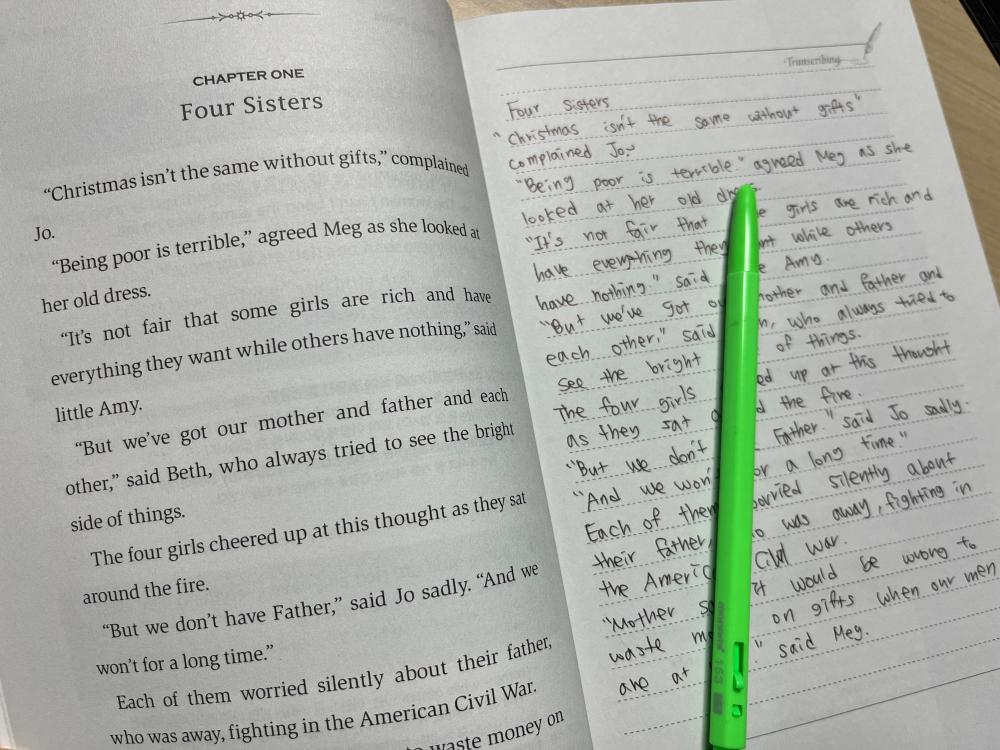 CHAPTER ONE
Four Sisters
“Christmas isn’t the same without gifts,” complained
Jo.
“Being poor is terrible,” agreed Meg as she looked at
her old dress.
“It’s not fair that some girls are rich and have
everything they want while others have nothing,” said
little Amy.
“But we’ve got our mother and father and each
other,” said Beth, who always tried to see the bright
side of things.
The four girls cheered up at this thought as they sat
around the fire.
“But we don’t have Father,” said Jo sadly. “And we
won’t for a long time.”
Each of them worried silently about their father,
who was away, fighting in the American Civil War.
waste money on
Transcribing
Four Sisters
"Christmas isn't the same without gifts"
complained Jo.
"Being poor is terrible." agreed Meg as she
looked at her old
"It's not fair that girls are rich and
have everything they while others
have nothing." said Amy.
"But we've got mother and father and
each other." said who always tried to
see the bright of things.
The four girls up at this thought
as they sat the fire.
"But we don't Father" said Jo sadly.
"And we for a long time"
Each of them worried silently about
their father, was away, fighting in
the Civil War.
"Mother it would be wrong to
waste on gifts when our men
are at " said Meg.
153